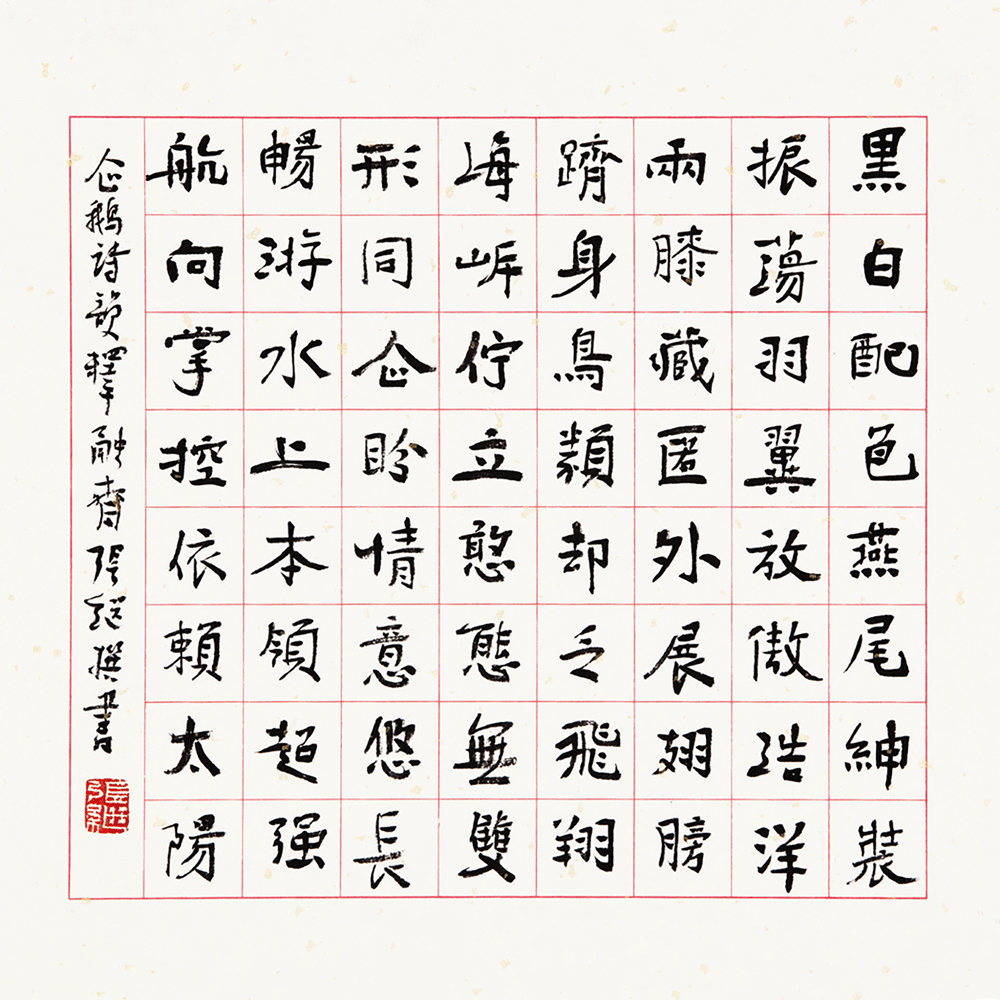 黑白配色燕尾紳裝
振蕩羽翼放傲浩洋
兩膝藏匿外展翅膀
躋身鳥類却乏飛翔
海岸佇立憨態無雙
形同企盼情意悠長
暢游水上本領超强
航向掌控依賴太陽
企鵝詩韻釋融齋張繼撰書